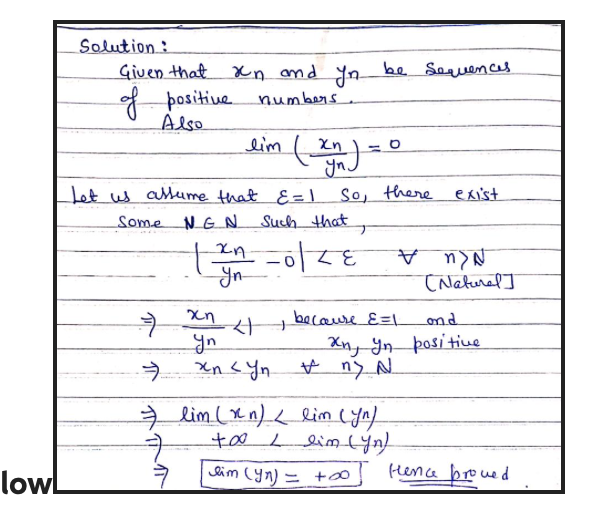 Solution :
Given that xn and yn be Sequences
of positive numbers.
Also
lim ( xn / yn ) = 0
Let us assume that ε=1 So, there exist
Some N ∈ N Such that,
| xn / yn - 0 | < ε ∀ n>N
[Natural]
⇒ xn / yn <1 , because ε=1 and
xn, yn positive
⇒ xn < yn ∀ n> N
⇒ lim(xn) < lim(yn)
⇒ +∞ < lim(yn)
⇒ lim(yn) = +∞ Hence proved.
low